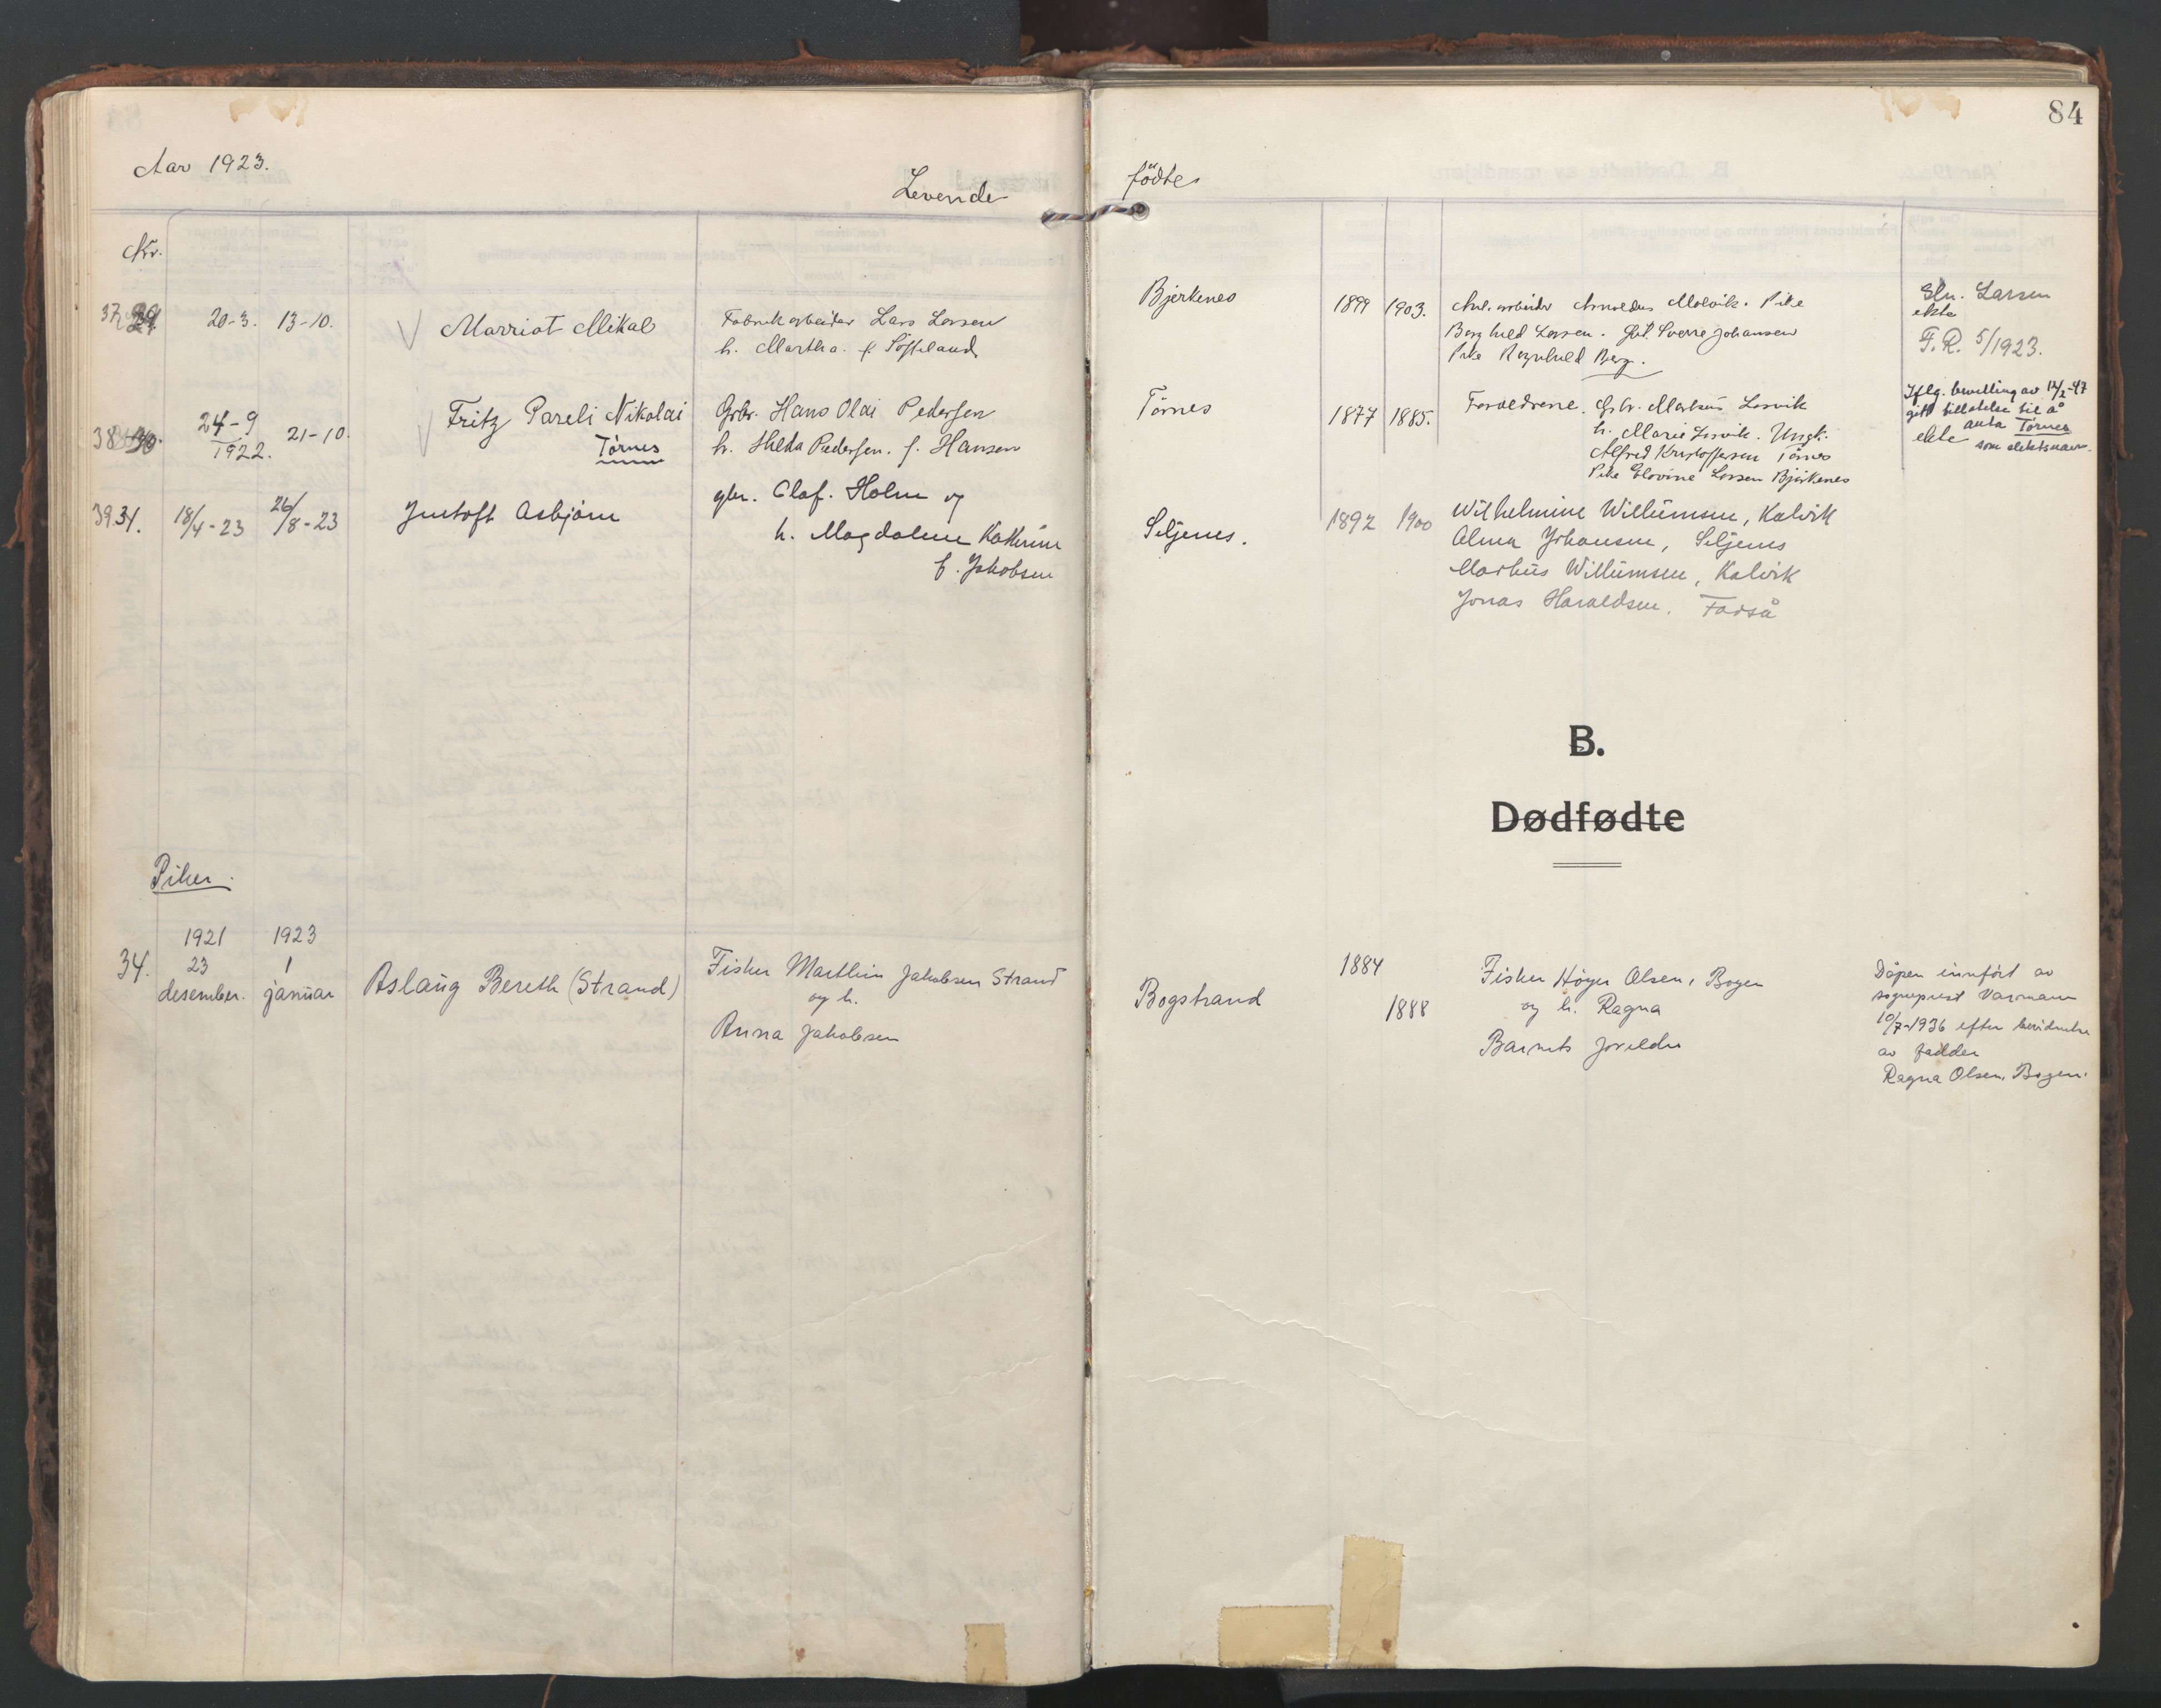 84
Aar 1923.
Levende
fødte
Nr.
37
20-3. 13-10.
Marriot Mikal
Fabrikarbeider Lars Larsen
h. Martha f.
Bjerkenes
1899 1903.
Anl. arbeider Arnoldus Molvik. Pike
Borghild Larsen. Sverre Johansen
Pike Ragnhild Berg.
Larsen
ekte
F.R. 5/1923.
38
24-9
1922.
21-10.
Fritz Pareli Nikolai
Tørnes
Grbr. Hans Olai Pedersen
h. Hilda Pedersen. f. Hansen
Tørnes
1877 1885.
Foreldrene. Grbr. Markus
h. Marie Ungk.
Alfred Kristoffersen Tørnes
Pike Elovine Larsen Bjørkenes
Iflg. bevilling av
gitt tillatelse til å
anta Tørnes
ekte som slektsnavn.
39. 31.
18/4-23 26/8-23
Gustoft Asbjørn
gbr. Olaf. Holm og
h. Magdalene Kathrine
f. Jakobsen
Seljenes.
1892 1900
Wilhelmine Willumsen, Kalvik
Alma Johansen, Seljenes
Markus Willumsen, Kalvik
Jonas Haraldsen. Forså
B.
Dødfødte
Piker.
34.
1921
23
desember.
1923
1
januar
Aslaug Bereth (Strand)
Fisker Marthin Jakobsen Strand
og h.
Anna Jakobsen
Bogstrand
1884
1888
Fisker Høyer Olsen, Bogen
og h. Ragna
Barnets foreldre
Dåpen innført av
sogneprest Varmann
10/7-1936 efter bevidnelse
av fadder
Ragna Olsen, Bogen.